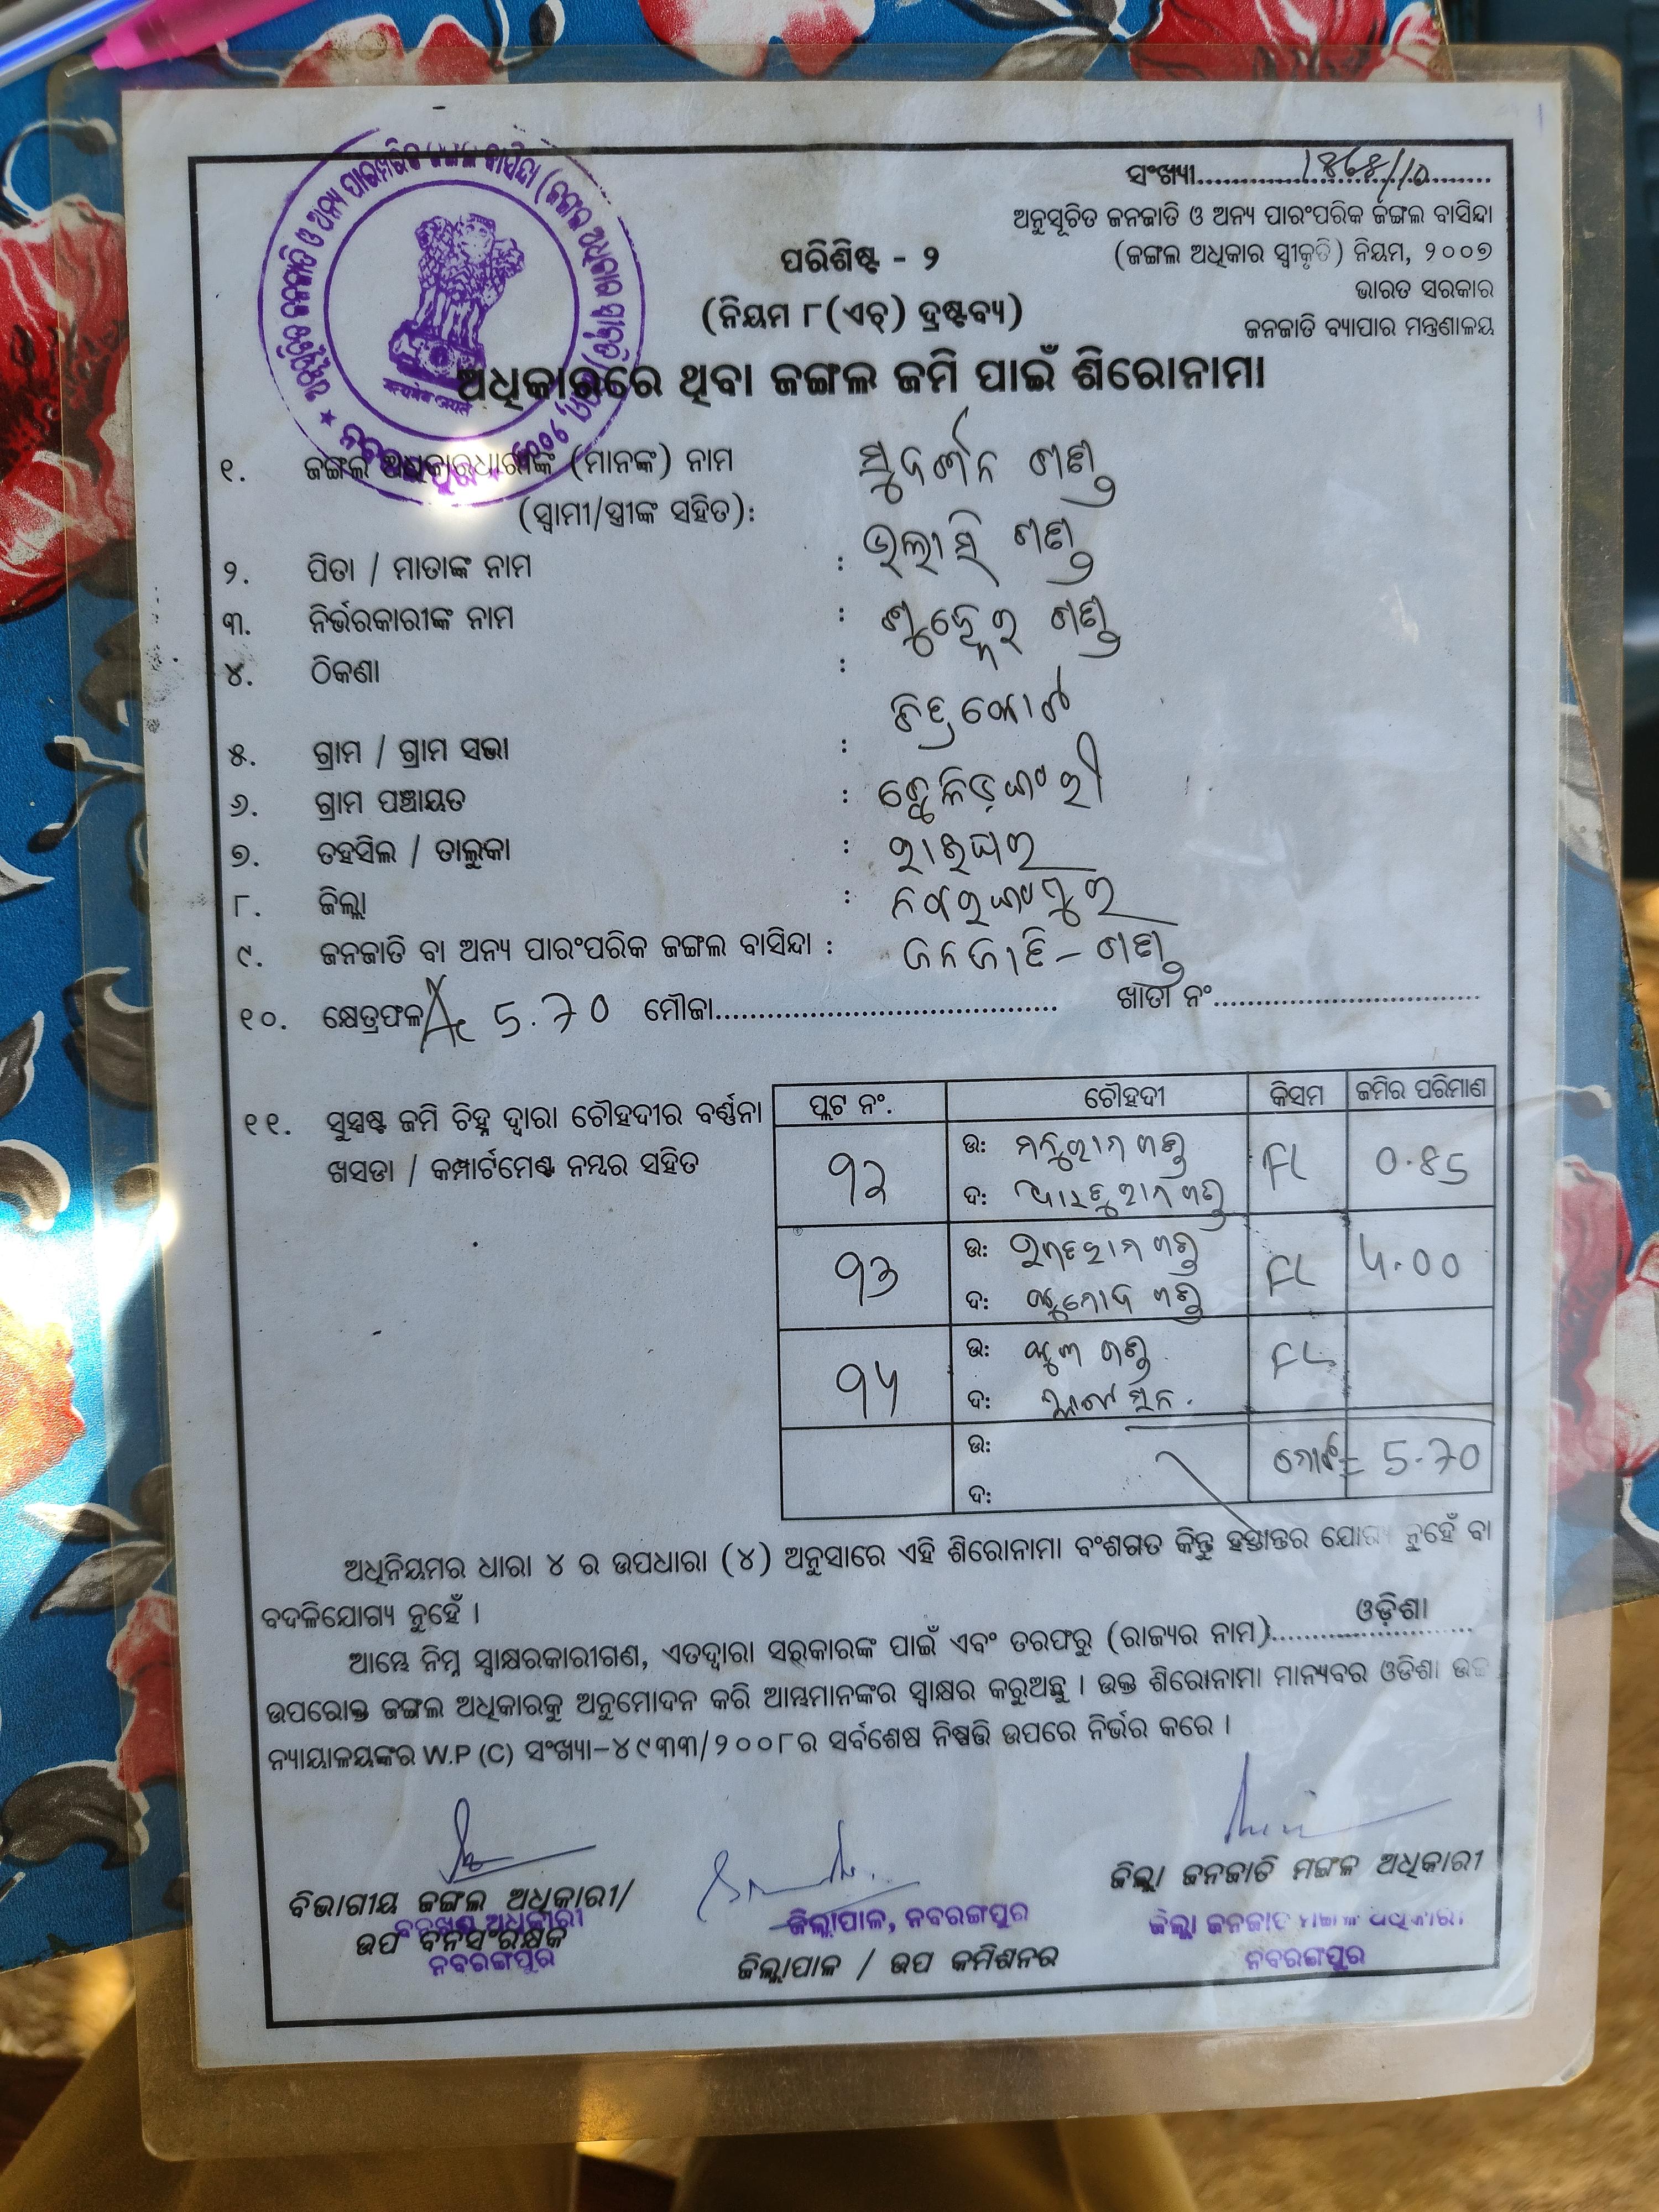 ସଂଖ୍ୟା....................................
ଅନୁସୂଚିତ ଜନଜାତି ଓ ଅନ୍ୟ ପାରଂପରିକ ଜଙ୍ଗଲ ବାସିନ୍ଦା
(ଜଙ୍ଗଲ ଅଧିକାର ସ୍ୱୀକୃତି) ନିୟମ, ୨୦୦୭
ଭାରତ ସରକାର
ଜନଜାତି ବ୍ୟାପାର ମନ୍ତ୍ରଣାଳୟ
ପରିଶିଷ୍ଟ - ୨
(ନିୟମ ୮(ଏଚ୍) ଦ୍ରଷ୍ଟବ୍ୟ)
ଅଧିକାରରେ ଥିବା ଜଙ୍ଗଲ ଜମି ପାଇଁ ଶିରୋନାମା
୧. ଜଙ୍ଗଲ ଅଧିକାରଧାରୀଙ୍କ (ମାନଙ୍କ) ନାମ ସୁଦର୍ଶନ ଗଣ୍ଡ
(ସ୍ୱାମୀ/ସ୍ତ୍ରୀଙ୍କ ସହିତ):
୨. ପିତା / ମାତାଙ୍କ ନାମ : ଗଣ୍ଡ
୩. ନିର୍ଭରକାରୀଙ୍କ ନାମ : ଗଣ୍ଡ
୪. ଠିକଣା :
୫. ଗ୍ରାମ / ଗ୍ରାମ ସଭା : ଚିତ୍ରକୋଟ
୬. ଗ୍ରାମ ପଞ୍ଚାୟତ :
୭. ତହସିଲ / ତାଲୁକା : ରାଇଘର
୮. ଜିଲ୍ଲା : ନବରଙ୍ଗପୁର
୯. ଜନଜାତି ବା ଅନ୍ୟ ପାରଂପରିକ ଜଙ୍ଗଲ ବାସିନ୍ଦା : ଜନଜାତି – ଗଣ୍ଡ
୧୦. କ୍ଷେତ୍ରଫଳ Ac 5.70 ମୌଜା........................................ ଖାତା ନଂ................................
୧୧. ସୁସ୍ପଷ୍ଟ ଜମି ଚିହ୍ନ ଦ୍ୱାରା ଚୌହଦୀର ବର୍ଣ୍ଣନା
ଖସଡା / କମ୍ପାର୍ଟମେଣ୍ଟ ନମ୍ବର ସହିତ
ପ୍ଲଟ ନଂ. ଚୌହଦୀ କିସମ ଜମିର ପରିମାଣ
୩୨ ଉ: ଗଣ୍ଡ FL 0.85
ଦ: ଗଣ୍ଡ
୩୩ ଉ: ଗଣ୍ଡ FL
ଦ: ଗଣ୍ଡ
ଉ: ଗଣ୍ଡ FL
ଦ:
ଉ: ମୋଟ = 5.70
ଦ:
ଅଧିନିୟମର ଧାରା ୪ ର ଉପଧାରା (୪) ଅନୁସାରେ ଏହି ଶିରୋନାମା ବଂଶଗତ କିନ୍ତୁ ହସ୍ତାନ୍ତର ଯୋଗ୍ୟ ନୁହେଁ ବା
ବଦଳିଯୋଗ୍ୟ ନୁହେଁ ।
ଆମ୍ଭେ ନିମ୍ନ ସ୍ୱାକ୍ଷରକାରୀଗଣ, ଏତଦ୍ୱାରା ସରକାରଙ୍କ ପାଇଁ ଏବଂ ତରଫରୁ (ରାଜ୍ୟର ନାମ)..........ଓଡ଼ିଶା..........
ଉପରୋକ୍ତ ଜଙ୍ଗଲ ଅଧିକାରକୁ ଅନୁମୋଦନ କରି ଆମ୍ଭମାନଙ୍କର ସ୍ୱାକ୍ଷର କରୁଅଛୁ । ଉକ୍ତ ଶିରୋନାମା ମାନ୍ୟବର ଓଡିଶା ଉଚ୍ଚ
ନ୍ୟାୟାଳୟଙ୍କର W.P (C) ସଂଖ୍ୟା–୪୯୩୩/୨୦୦୮ର ସର୍ବଶେଷ ନିଷ୍ପତ୍ତି ଉପରେ ନିର୍ଭର କରେ ।
ବିଭାଗୀୟ ଜଙ୍ଗଲ ଅଧିକାରୀ/
ବନଖଣ୍ଡ ଅଧିକାରୀ
ଉପ ବନସଂରକ୍ଷକ
ନବରଙ୍ଗପୁର
ଜିଲ୍ଲାପାଳ, ନବରଙ୍ଗପୁର
ଜିଲ୍ଲାପାଳ / ଉପ କମିଶନର
ଜିଲ୍ଲା ଜନଜାତି ମଙ୍ଗଳ ଅଧିକାରୀ
ଜିଲ୍ଲା ଜନଜାତି ମଙ୍ଗଳ ଅଧିକାରୀ
ନବରଙ୍ଗପୁର